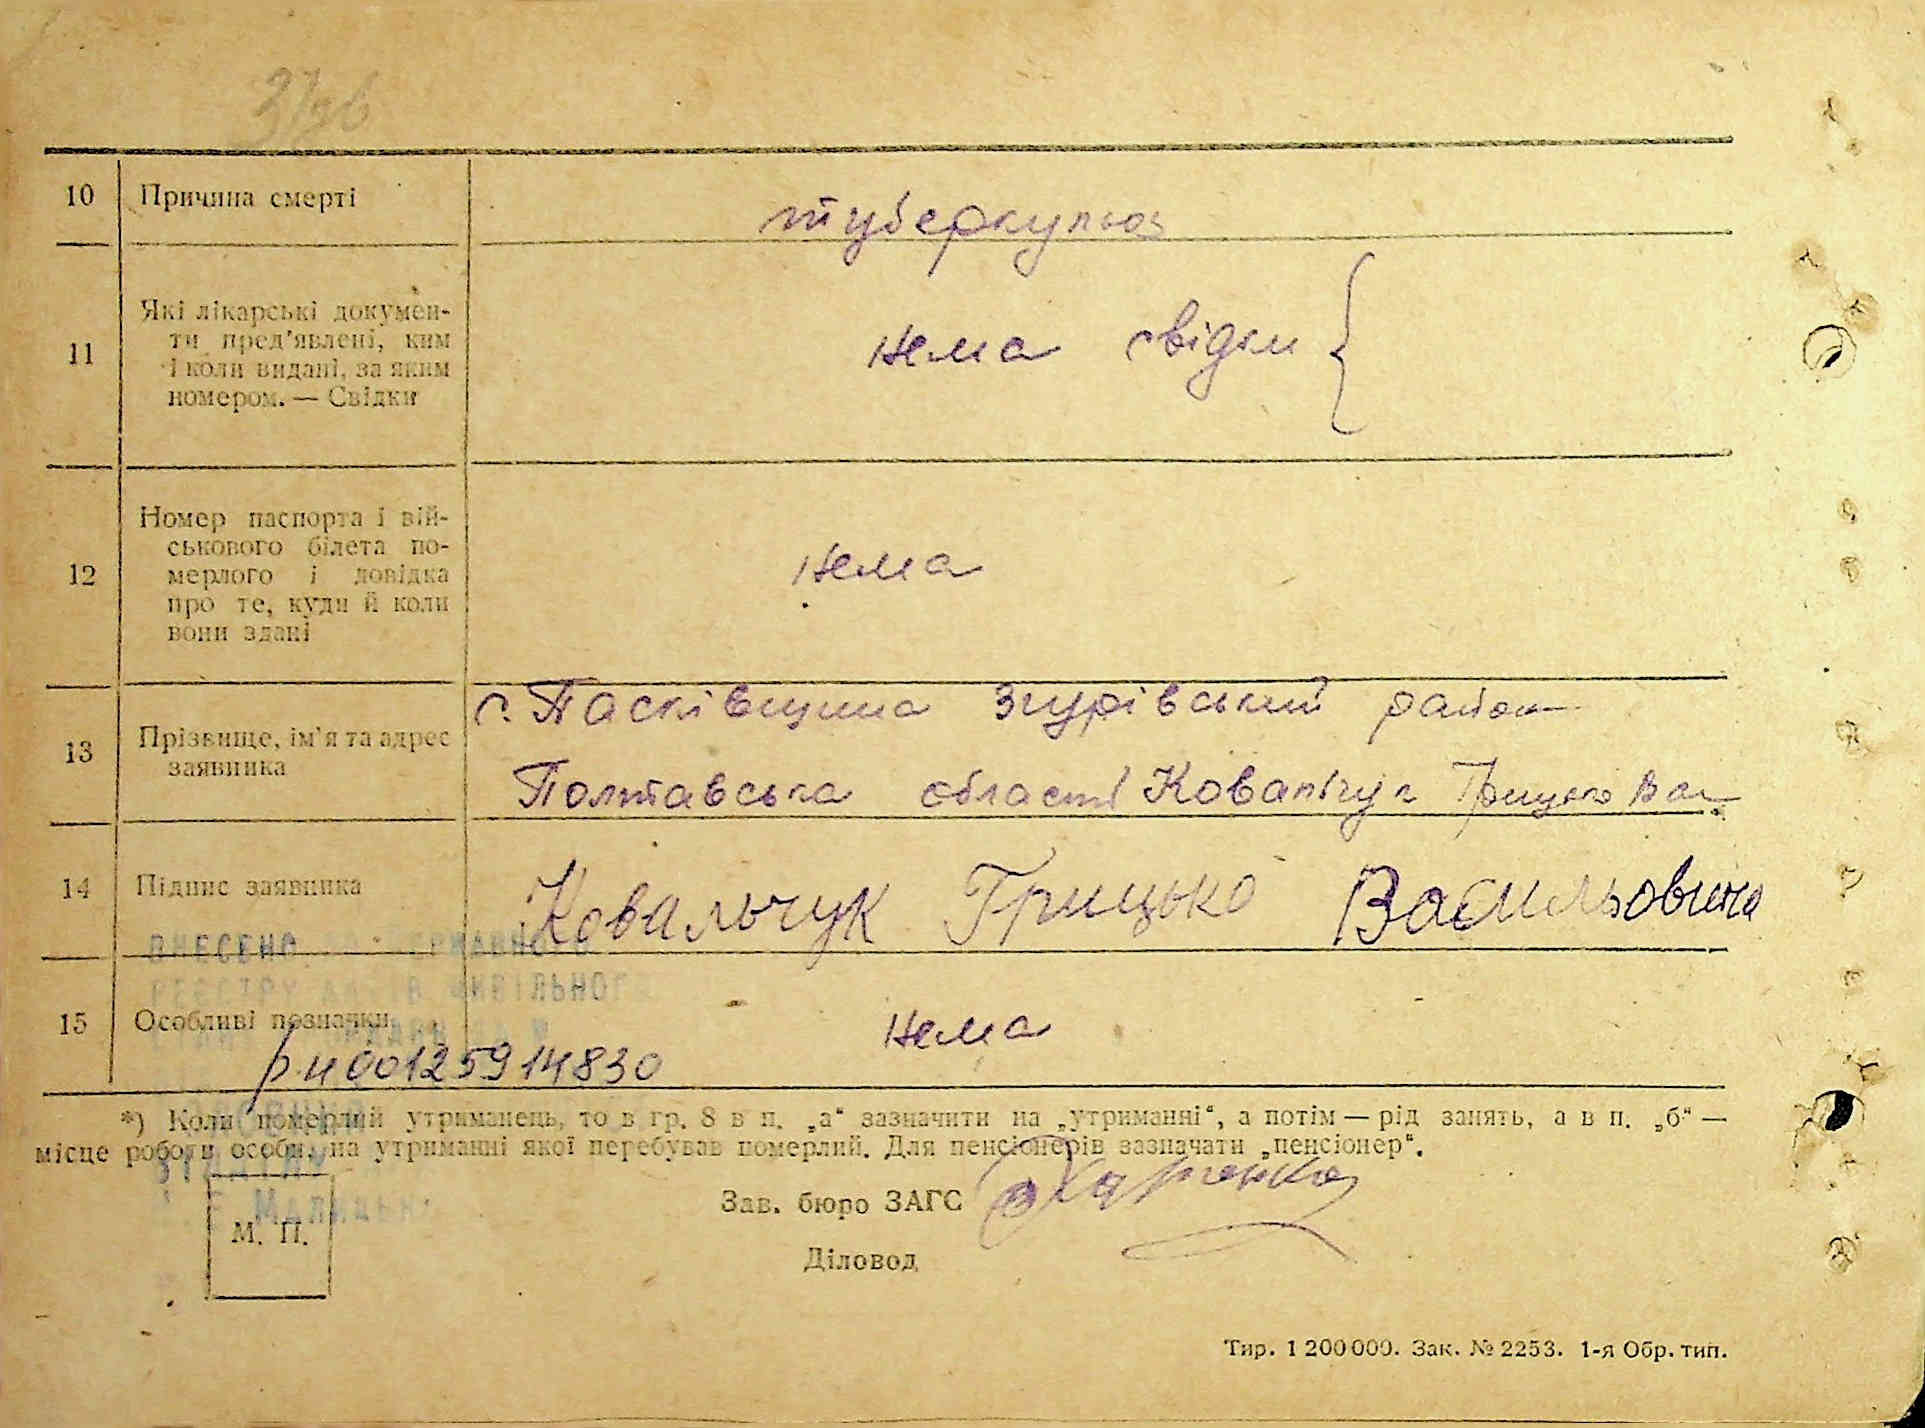 10 Причина смерті
туберкульоз
11 Які лікарські докумен-
ти пред'явлені, ким
і коли видані, за яким
номером. — Свідки
нема свідки {
12 Номер паспорта і вій-
ськового білета по-
мерлого і довідка
про те, куди й коли
вони здані
нема
13 Прізвище, ім'я та адрес
заявника
с. Пасківщина Згурівський район
Полтавська області Ковальчук Грицько Вас
14 Підпис заявника
Ковальчук Грицько Васильовича
ВНЕСЕНО ДО ДЕРЖАВНОГО
РЕЄСТРУ АКТІВ ЦИВІЛЬНОГО
15 Особливі позначки
нема
00125914830
*) Коли померлий утриманець, то в гр. 8 в п. „а“ зазначити на „утриманні“, а потім — рід занять, а в п. „б“ —
місце роботи особи, на утриманні якої перебував померлий. Для пенсіонерів зазначати „пенсіонер“.
Зав. бюро ЗАГС
М. П.
Діловод
Тир. 1 200 000. Зак. № 2253. 1-я Обр. тип.